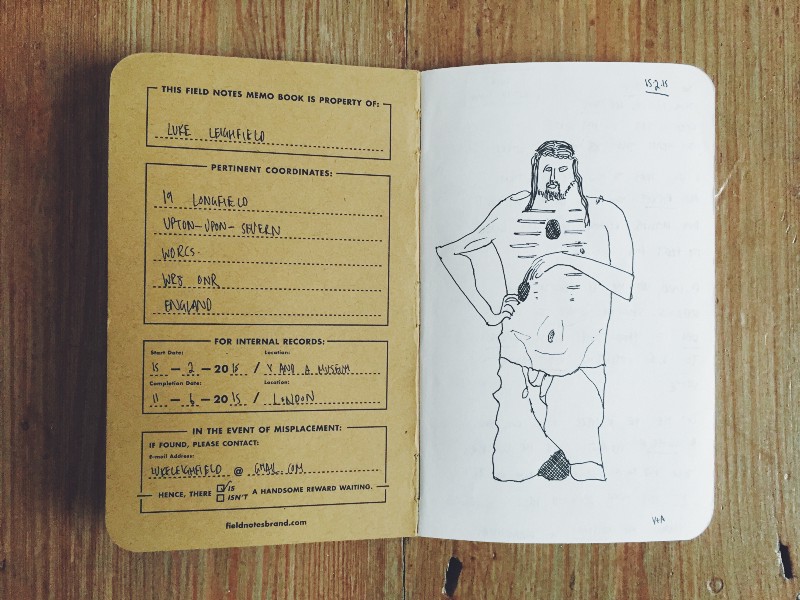 THIS FIELD NOTES MEMO BOOK IS PROPERTY OF:
LUKE LEIGHFIELD
PERTINENT COORDINATES:
19 LONGFIELD
UPTON-UPON-SEVERN
WORCS.
WR8 0NR
ENGLAND
FOR INTERNAL RECORDS:
Start Date: Location:
15 - 2 - 2015 / V AND A MUSEUM
Completion Date: Location:
11 - 6 - 2015 / LONDON
IN THE EVENT OF MISPLACEMENT:
IF FOUND, PLEASE CONTACT:
E-mail Address:
LUKELEIGHFIELD @ GMAIL.COM
HENCE, THERE IS A HANDSOME REWARD WAITING.
ISN'T
fieldnotesbrand.com
15.2.15
V+A